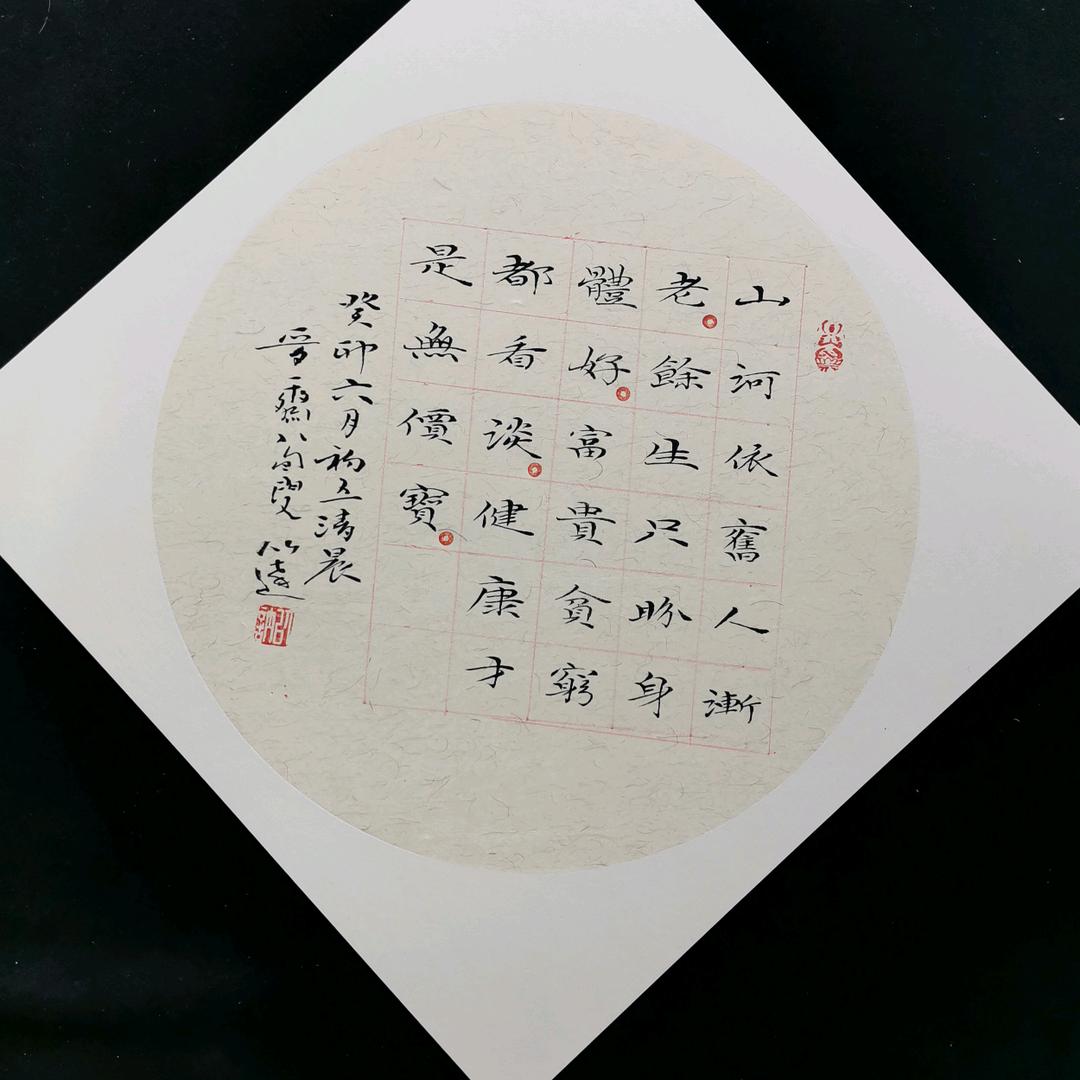 山河依舊人漸
老餘生只盼身
體好富貴貧窮
都看談健康才
是無價寶
癸卯六月初五清晨